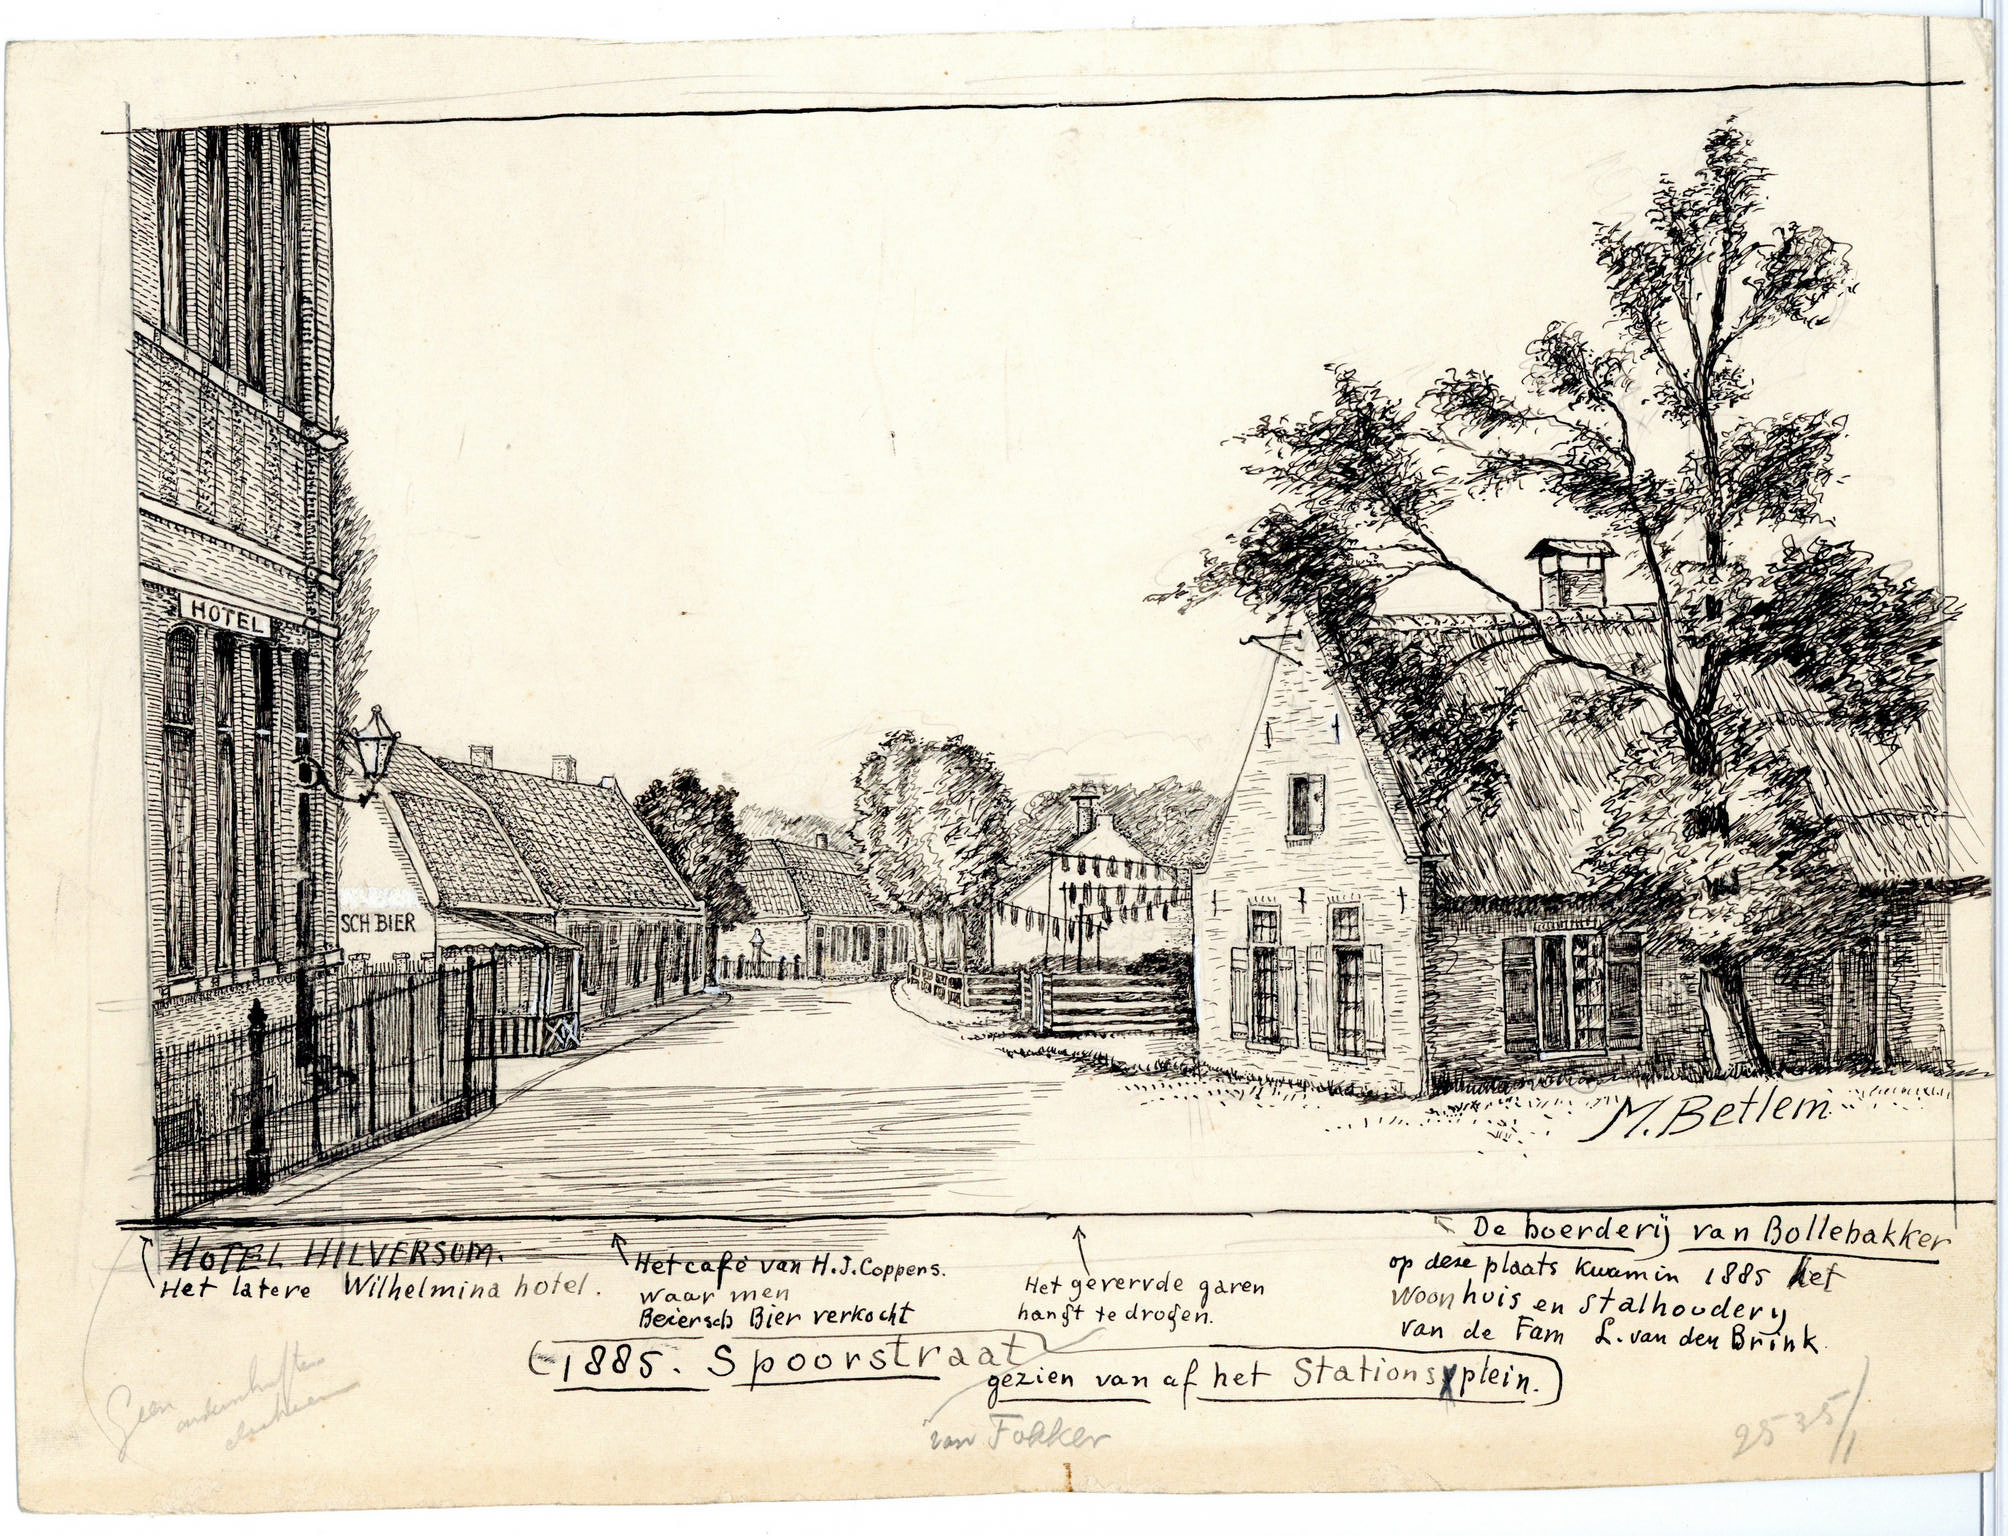 HOTEL
SCH BIER
M. Betlem.
HOTEL HILVERSUM.
Het latere Wilhelmina hotel.
Het café van H.J. Coppers.
waar men
Beiersch Bier verkocht
Het geververde garen
hangt te drogen.
De boerderij van Bollebakker
op deze plaats kwam in 1885 het
Woonhuis en stalhoudery
van de Fam L. van den Brink.
(1885. Spoorstraat
gezien van af het Stationsplein.)
van Fokker
Geen
2535/1